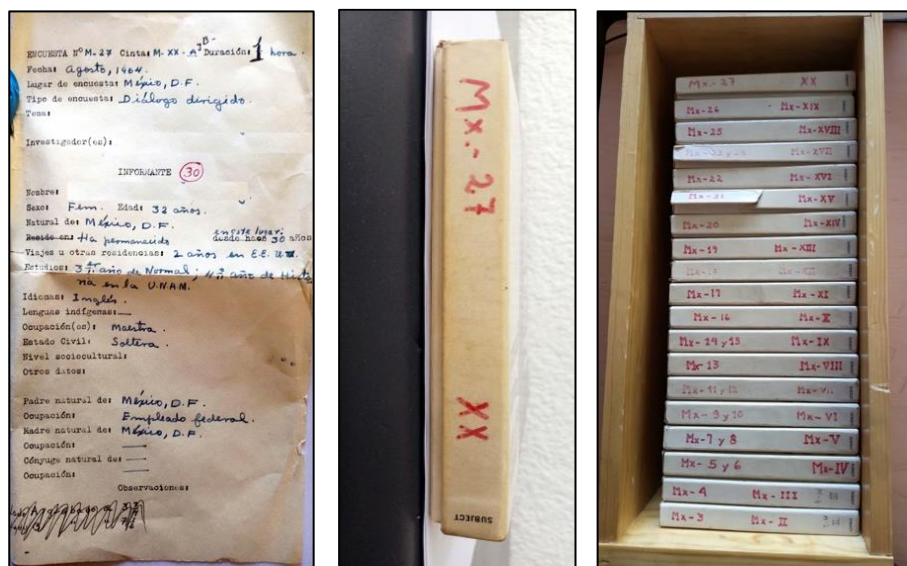 ENCUESTA Nº M-27 Cinta: M-XX-A Duración: 1 hora.
Fecha: Agosto, 1964.
Lugar de encuesta: México, D.F.
Tipo de encuesta: Diálogo dirigido.
Tema:
Investigador(es):
INFORMANTE 30
Nombre:
Sexo: Fem. Edad: 32 años.
Natural de: México, D.F.
Reside en: Ha permanecido en este lugar desde hace 30 años
Viajes u otras residencias: 2 años en E.E. U.U.
Estudios: 3er año de Normal; 4º año de Histo
ria en la U.N.A.M.
Idiomas: Inglés.
Lenguas indígenas:
Ocupación(os): Maestra.
Estado Civil: Soltera.
Nivel sociocultural:
Otros datos:
Padre natural de: México, D.F.
Ocupación: Empleado federal.
Madre natural de: México, D.F.
Ocupación:
Cónyuge natural de:
Ocupación:
Observaciones:
Mx.-27 XX
SUBJECT
Mx.-27 XX
Mx-26 Mx-XIX
Mx-25 Mx-XVIII
Mx-XVII
Mx-22 Mx-XVI
Mx-21 Mx-XV
Mx-20 Mx-XIV
Mx-19 Mx-XIII
Mx-18 Mx-XII
Mx-17 Mx-XI
Mx-16 Mx-X
Mx-14 y 15 Mx-IX
Mx-13 Mx-VIII
Mx-11 y 12 Mx-VII
Mx-9 y 10 Mx-VI
Mx-7 y 8 Mx-V
Mx-5 y 6 Mx-IV
Mx-4 Mx-III
Mx-3 Mx-II